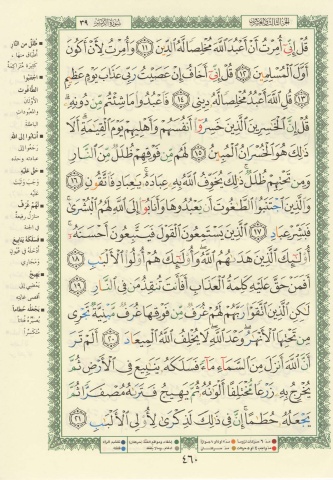 سورة الزمر
٣٩
قُلْ إِنِّي أُمِرْتُ أَنْ أَعْبُدَ اللَّهَ مُخْلِصًا لَّهُ الدِّينَ ١١ وَأُمِرْتُ لِأَنْ أَكُونَ
أَوَّلَ الْمُسْلِمِينَ ١٢ قُلْ إِنِّي أَخَافُ إِنْ عَصَيْتُ رَبِّي عَذَابَ يَوْمٍ عَظِيمٍ
١٣ قُلِ اللَّهَ أَعْبُدُ مُخْلِصًا لَّهُ دِينِي ١٤ فَاعْبُدُوا مَا شِئْتُم مِّن دُونِهِ
قُلْ إِنَّ الْخَاسِرِينَ الَّذِينَ خَسِرُوا أَنفُسَهُمْ وَأَهْلِيهِمْ يَوْمَ الْقِيَامَةِ أَلَا
ذَلِكَ هُوَ الْخُسْرَانُ الْمُبِينُ ١٥ لَهُم مِّن فَوْقِهِمْ ظُلَلٌ مِّنَ النَّارِ
وَمِن تَحْتِهِمْ ظُلَلٌ ذَلِكَ يُخَوِّفُ اللَّهُ بِهِ عِبَادَهُ يَاعِبَادِ فَاتَّقُونِ ١٦
وَالَّذِينَ اجْتَنَبُوا الطَّاغُوتَ أَن يَعْبُدُوهَا وَأَنَابُوا إِلَى اللَّهِ لَهُمُ الْبُشْرَى
فَبَشِّرْ عِبَادِ ١٧ الَّذِينَ يَسْتَمِعُونَ الْقَوْلَ فَيَتَّبِعُونَ أَحْسَنَهُ
أُولَئِكَ الَّذِينَ هَدَاهُمُ اللَّهُ وَأُولَئِكَ هُمْ أُولُوا الْأَلْبَابِ ١٨
أَفَمَنْ حَقَّ عَلَيْهِ كَلِمَةُ الْعَذَابِ أَفَأَنتَ تُنقِذُ مَن فِي النَّارِ ١٩
لَكِنِ الَّذِينَ اتَّقَوْا رَبَّهُمْ لَهُمْ غُرَفٌ مِّن فَوْقِهَا غُرَفٌ مَّبْنِيَّةٌ تَجْرِي
مِن تَحْتِهَا الْأَنْهَارُ وَعْدَ اللَّهِ لَا يُخْلِفُ اللَّهُ الْمِيعَادَ ٢٠ أَلَمْ تَرَ
أَنَّ اللَّهَ أَنزَلَ مِنَ السَّمَاءِ مَاءً فَسَلَكَهُ يَنَابِيعَ فِي الْأَرْضِ ثُمَّ
يُخْرِجُ بِهِ زَرْعًا مُّخْتَلِفًا أَلْوَانُهُ ثُمَّ يَهِيجُ فَتَرَاهُ مُصْفَرًّا ثُمَّ
يَجْعَلُهُ حُطَامًا إِنَّ فِي ذَلِكَ لَذِكْرَى لِأُولِي الْأَلْبَابِ ٢١
ظلل من النار
أطباق منها
اجتنبوا
الطاغوت
الأوثان
أنابوا إلى الله
رجعوا إلى
عبادته وحده
حق عليه
وجب وثبت
عليه
لهم غرف
منازل رفيعة
في الجنة
فسلكه ينابيع
يهيج
يجعله حطاما
٤٦٠